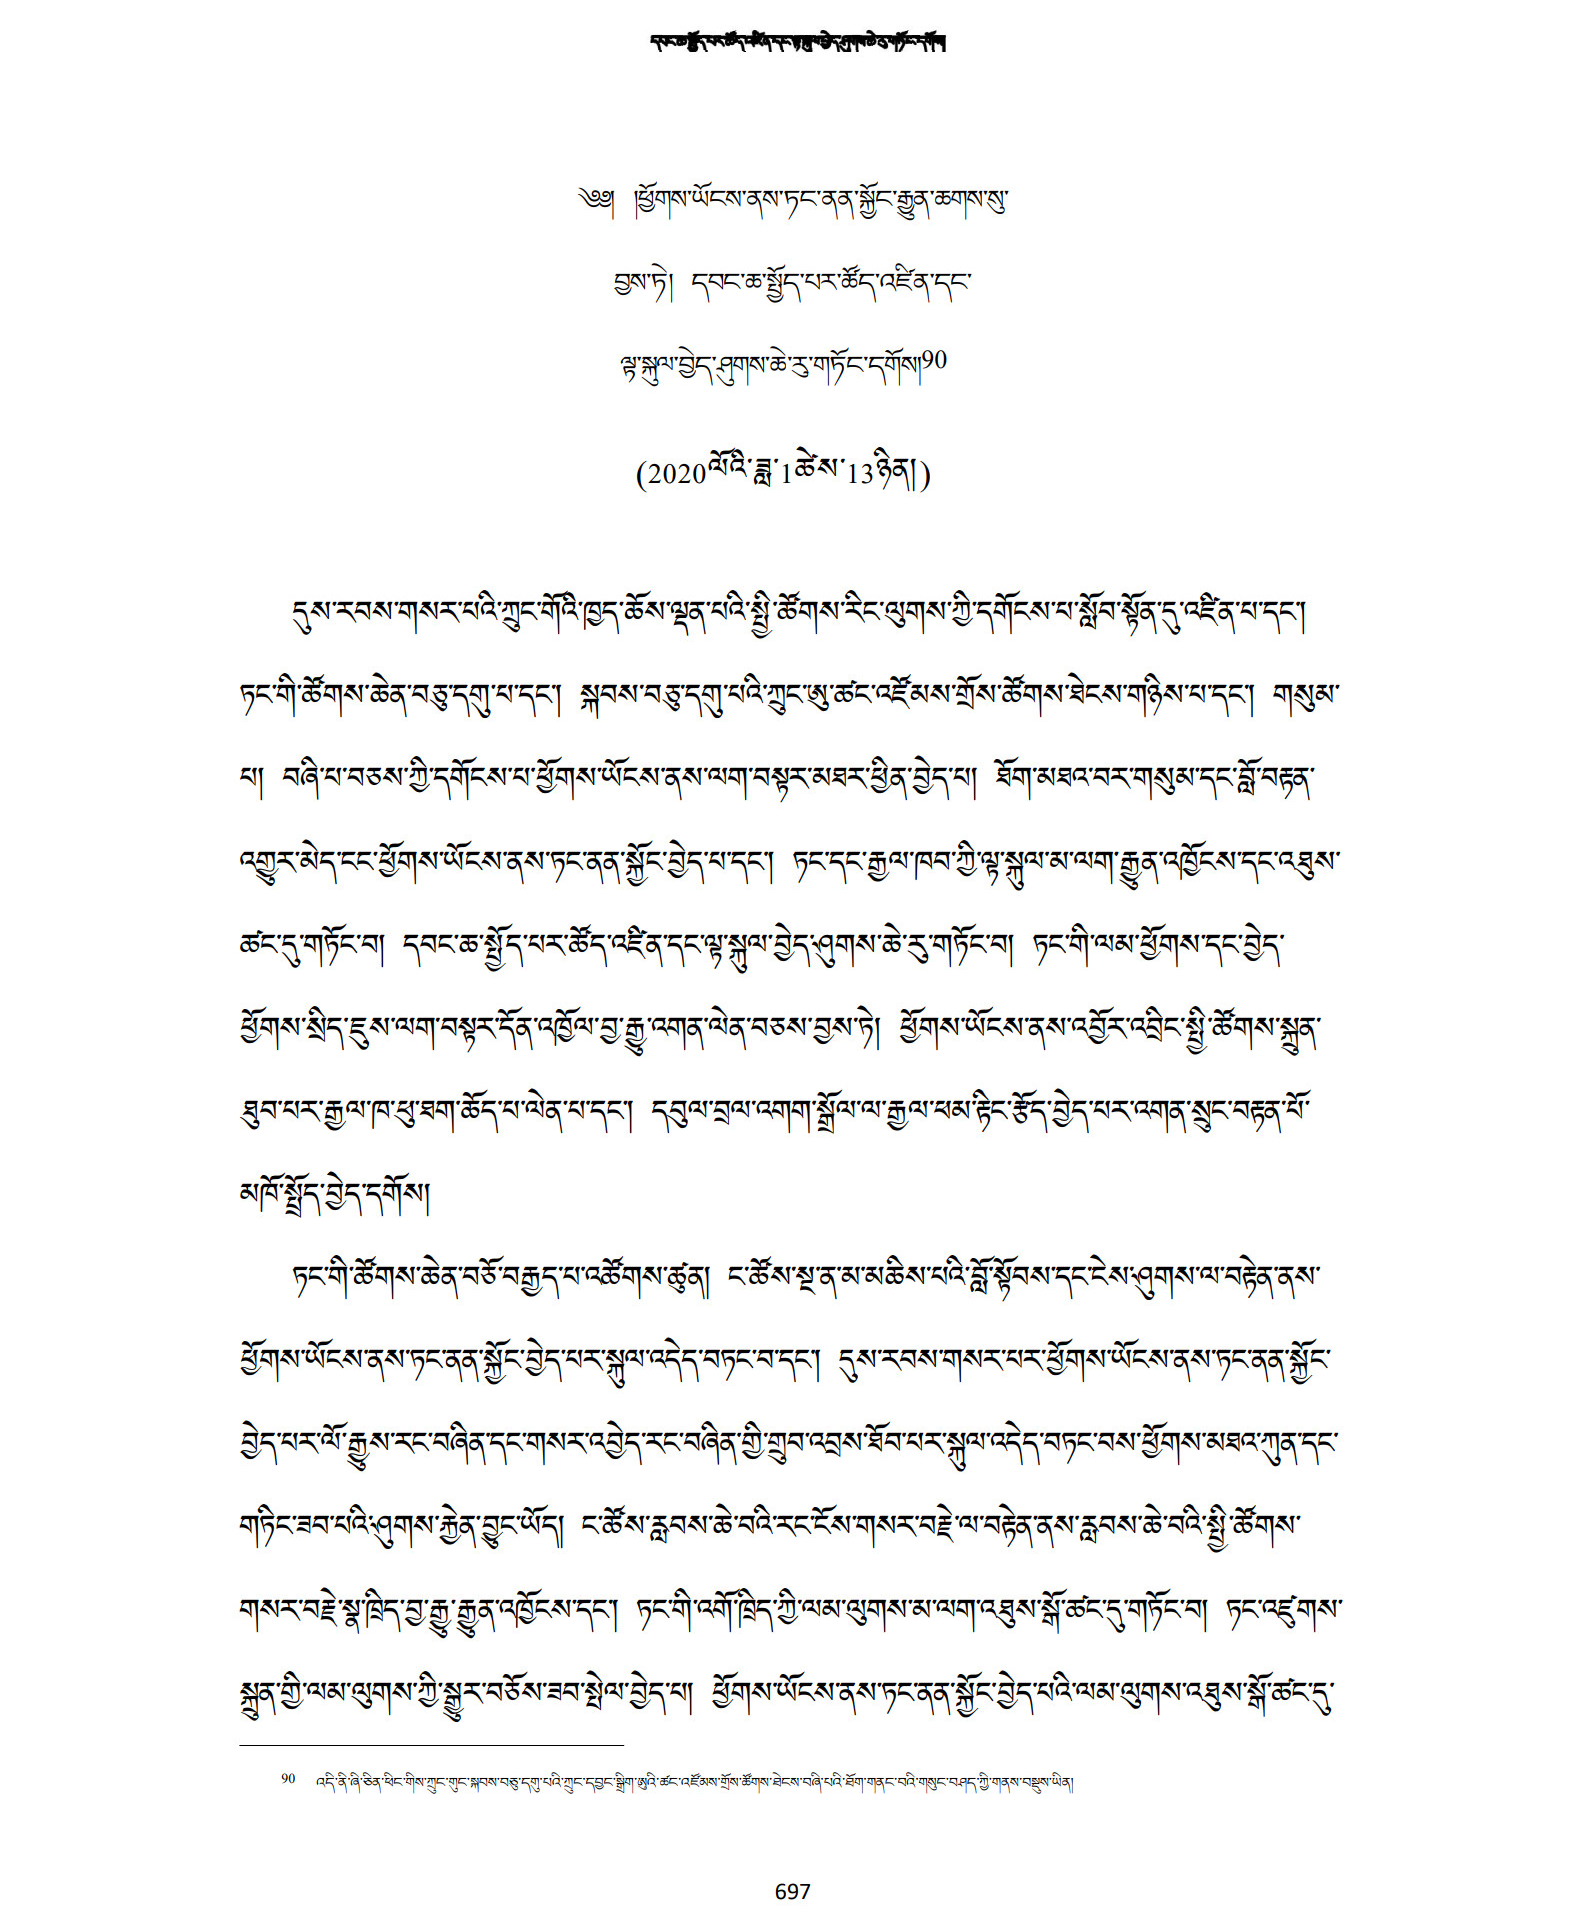 དབང་ཆ་སྤྱོད་པར་ཚོད་འཛིན་དང་ལྟ་སྐུལ་བྱེད་ཤུགས་ཆེ་རུ་གཏོང་དགོས།
༄༅། །ཕྱོགས་ཡོངས་ནས་ཏང་ནན་སྐྱོང་རྒྱུན་ཆགས་སུ་
བྱས་ཏེ། དབང་ཆ་སྤྱོད་པར་ཚོད་འཛིན་དང་
ལྟ་སྐུལ་བྱེད་ཤུགས་ཆེ་རུ་གཏོང་དགོས།90
(2020ལོའི་ཟླ་1ཚེས་13ཉིན།)
དུས་རབས་གསར་པའི་ཀྲུང་གོའི་ཁྱད་ཆོས་ལྡན་པའི་སྤྱི་ཚོགས་རིང་ལུགས་ཀྱི་དགོངས་པ་སློབ་སྟོན་དུ་འཛིན་པ་དང་།
ཏང་གི་ཚོགས་ཆེན་བཅུ་དགུ་པ་དང་། སྐབས་བཅུ་དགུ་པའི་ཀྲུང་ཨུ་ཚང་འཛོམས་གྲོས་ཚོགས་ཐེངས་གཉིས་པ་དང་། གསུམ་
པ། བཞི་པ་བཅས་ཀྱི་དགོངས་པ་ཕྱོགས་ཡོངས་ནས་ལག་བསྟར་མཐར་ཕྱིན་བྱེད་པ། ཐོག་མཐའ་བར་གསུམ་དང་བློ་བརྟན་
འགྱུར་མེད་ངང་ཕྱོགས་ཡོངས་ནས་ཏང་ནན་སྐྱོང་བྱེད་པ་དང་། ཏང་དང་རྒྱལ་ཁབ་ཀྱི་ལྟ་སྐུལ་མ་ལག་རྒྱུན་འཁྱོངས་དང་འཐུས་
ཚང་དུ་གཏོང་བ། དབང་ཆ་སྤྱོད་པར་ཚོད་འཛིན་དང་ལྟ་སྐུལ་བྱེད་ཤུགས་ཆེ་རུ་གཏོང་བ། ཏང་གི་ལམ་ཕྱོགས་དང་བྱེད་
ཕྱོགས་སྲིད་ཇུས་ལག་བསྟར་དོན་འཁྱོལ་བྱ་རྒྱུ་འགན་ལེན་བཅས་བྱས་ཏེ། ཕྱོགས་ཡོངས་ནས་འབྱོར་འབྲིང་སྤྱི་ཚོགས་སྐྲུན་
ཐུབ་པར་རྒྱལ་ཁ་ཕུ་ཐག་ཆོད་པ་ལེན་པ་དང་། དབུལ་བྲལ་འགག་སྒྲོལ་ལ་རྒྱལ་ཕམ་རྟིང་རྩོད་བྱེད་པར་འགན་སྲུང་བརྟན་པོ་
མཁོ་སྤྲོད་བྱེད་དགོས།
ཏང་གི་ཚོགས་ཆེན་བཅོ་བརྒྱད་པ་འཚོགས་ཚུན། ང་ཚོས་སྔ་ན་མ་མཆིས་པའི་བློ་སྟོབས་དང་ངེས་ཤུགས་ལ་བརྟེན་ནས་
ཕྱོགས་ཡོངས་ནས་ཏང་ནན་སྐྱོང་བྱེད་པར་སྐུལ་འདེད་བཏང་བ་དང་། དུས་རབས་གསར་པར་ཕྱོགས་ཡོངས་ནས་ཏང་ནན་སྐྱོང་
བྱེད་པར་ལོ་རྒྱུས་རང་བཞིན་དང་གསར་འབྱེད་རང་བཞིན་གྱི་གྲུབ་འབྲས་ཐོབ་པར་སྐུལ་འདེད་བཏང་བས་ཕྱོགས་མཐའ་ཀུན་དང་
གཏིང་ཟབ་པའི་ཤུགས་རྐྱེན་བྱུང་ཡོད། ང་ཚོས་རླབས་ཆེ་བའི་རང་ངོས་གསར་བརྗེ་ལ་བརྟེན་ནས་རླབས་ཆེ་བའི་སྤྱི་ཚོགས་
གསར་བརྗེ་སྣ་ཁྲིད་བྱ་རྒྱུ་རྒྱུན་འཁྱོངས་དང་། ཏང་གི་འགོ་ཁྲིད་ཀྱི་ལམ་ལུགས་མ་ལག་འཐུས་སྒོ་ཚང་དུ་གཏོང་བ། ཏང་འཛུགས་
སྐྲུན་གྱི་ལམ་ལུགས་ཀྱི་སྒྱུར་བཅོས་ཟབ་སྤེལ་བྱེད་པ། ཕྱོགས་ཡོངས་ནས་ཏང་ནན་སྐྱོང་བྱེད་པའི་ལམ་ལུགས་འཐུས་སྒོ་ཚང་དུ་
90 འདི་ནི་ཞི་ཅིན་ཕིང་གིས་ཀྲུང་གུང་སྐབས་བཅུ་དགུ་པའི་ཀྲུང་དབྱང་སྒྲིག་ཨུའི་ཚང་འཛོམས་གྲོས་ཚོགས་ཐེངས་བཞི་པའི་ཐོག་གནང་བའི་གསུང་བཤད་ཀྱི་གནས་བསྡུས་ཡིན།
697